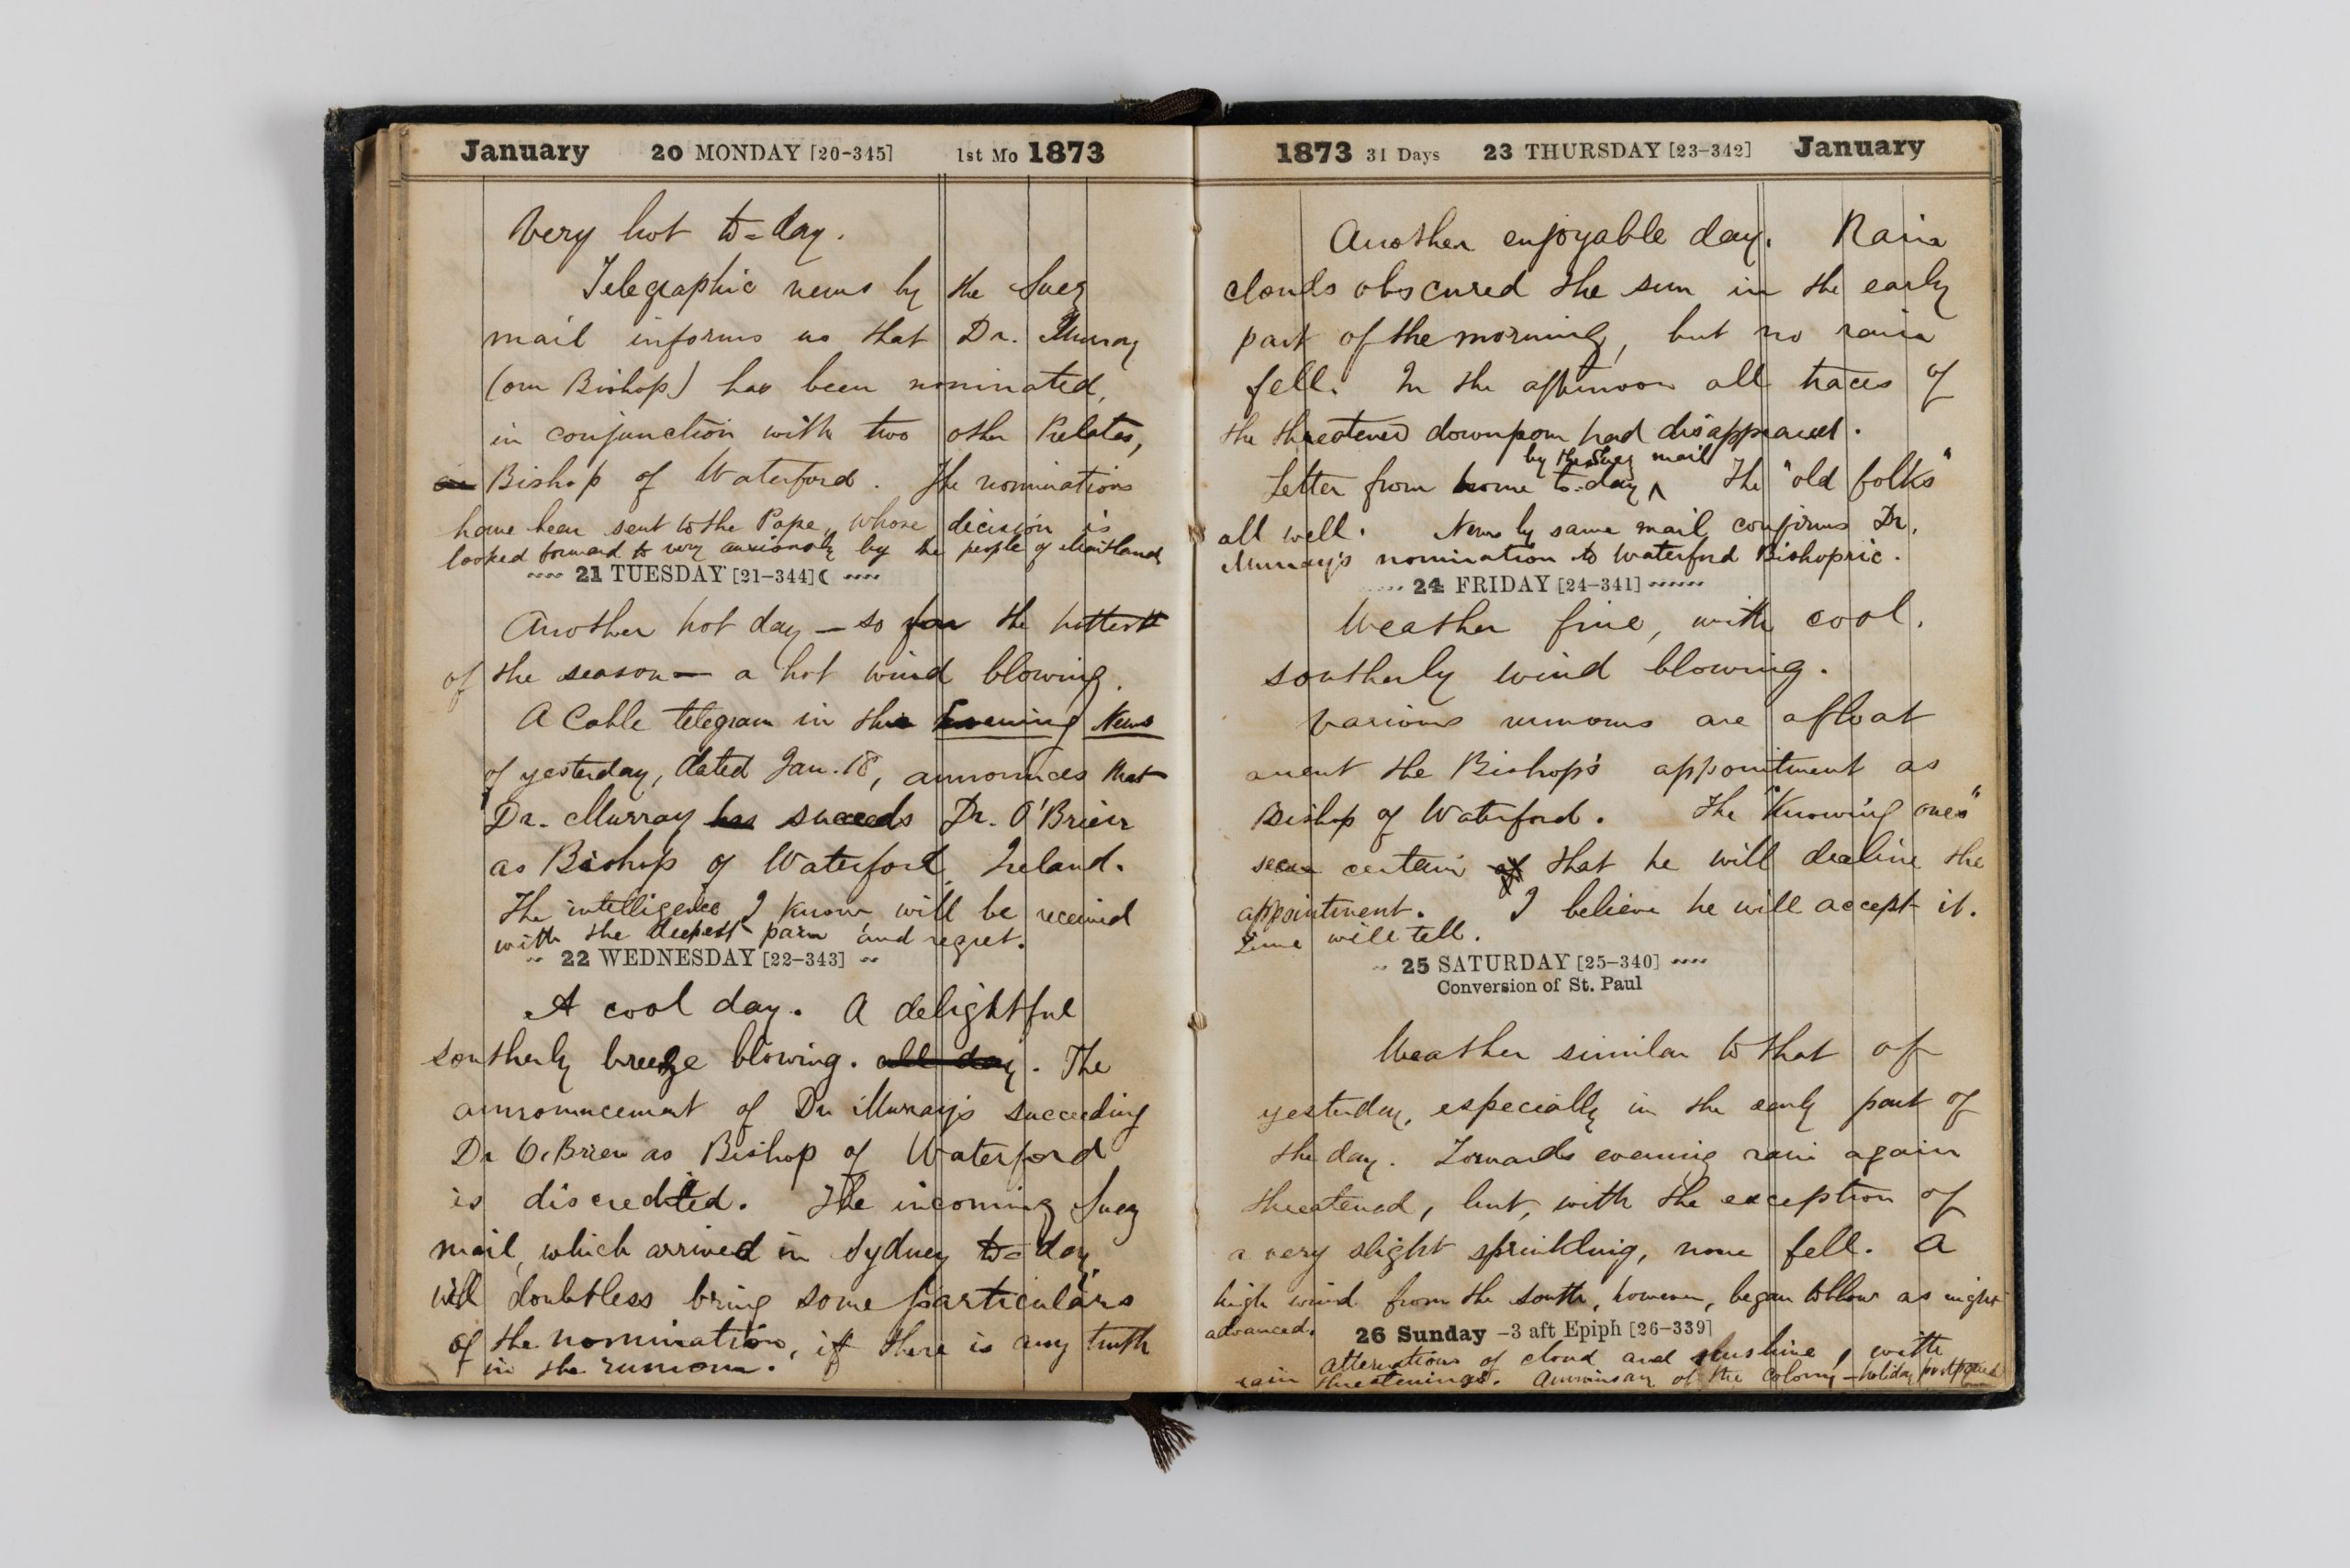 January 20 MONDAY [20-345] 1st Mo 1873
Very hot to=day.
Telegraphic news by the Suez
mail informs us that Dr. Murray
(our Bishop) has been nominated,
in conjunction with two other Prelates,
as Bishop of Waterford. The nominations
have been sent to the Pope, whose decision is
looked forward to very anxiously by the people of Maitland
21 TUESDAY [21-344]
Another hot day — so far the hottest
of the season — a hot wind blowing.
A Cable telegram in the Evening News
of yesterday, dated Jan. 18, announces that
Dr. Murray has succeeds Dr. O'Brien
as Bishop of Waterford, Ireland.
The intelligence I know will be received
with the deepest pain and regret.
22 WEDNESDAY [22-343]
A cool day. A delightful
southerly breeze blowing. all day. The
announcement of Dr Murray's succeeding
Dr O'Brien as Bishop of Waterford
is discredited. The incoming Suez
mail, which arrived in Sydney to=day,
will doubtless bring some particulars
of the nomination, if there is any truth
in the rumour.
1873 31 Days 23 THURSDAY [23-342] January
Another enjoyable day. Rain
clouds obscured the sun in the early
part of the morning, but no rain
fell. In the afternoon all traces of
the threatened downpour had disappeared.
by the Suez mail
Letter from home to-day ^ The "old folks"
all well. News by same mail confirms Dr.
Murray's nomination to Waterford Bishopric.
24 FRIDAY [24-341]
Weather fine, with cool.
southerly wind blowing.
Various rumours are afloat
anent the Bishop's appointment as
Bishop of Waterford. The "Knowing ones"
seem certain of that he will decline the
appointment. I believe he will accept it.
Time will tell.
25 SATURDAY [25-340]
Conversion of St. Paul
Weather similar to that of
yesterday, especially in the early part of
the day. Towards evening rain again
threatened, but, with the exception of
a very slight sprinkling, none fell. A
high wind from the south, however, began to blow as night
advanced.
26 Sunday -3 aft Epiph [26-339]
Alternations of cloud and sunshine, with
rain threatenings. Anniversary of the Colony — holiday postponed